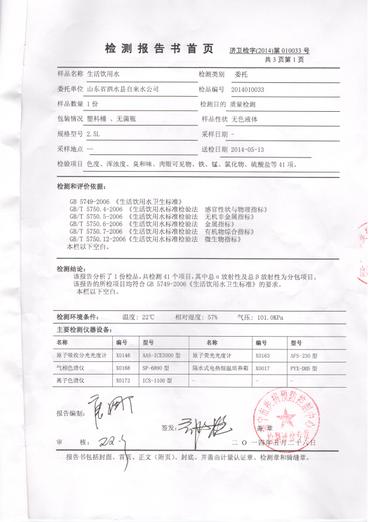 检测报告书首页 济卫检字(2014)第 010033 号
共 3 页第 1 页
样品名称 生活饮用水 检测类别 委托
委托单位 山东省泗水县自来水公司 检品编号 2014010033
样品数量 1 份 检测目的 质量检测
包装情况 塑料桶、无菌瓶 样品性状 无色液体
规格型号 2.5L 采样日期 -
采样地点 — 送检日期 2014-05-13
检验项目 色度、浑浊度、臭和味、肉眼可见物、铁、锰、氯化物、硫酸盐等 41 项。
检测和评价依据:
GB 5749-2006 《生活饮用水卫生标准》
GB/T 5750.4-2006 《生活饮用水标准检验法 感官性状与物理指标》
GB/T 5750.5-2006 《生活饮用水标准检验法 无机非金属指标》
GB/T 5750.6-2006 《生活饮用水标准检验法 金属指标》
GB/T 5750.7-2006 《生活饮用水标准检验法 有机物综合指标》
GB/T 5750.12-2006 《生活饮用水标准检验法 微生物指标》
本栏以下空白。
检测结论:
该报告分析了 1 份检品,共检测 41 个项目,其中总 α 放射性及总 β 放射性为分包项目。
该报告的所检项目均符合 GB 5749-2006《生活饮用水卫生标准》的要求。
本栏以下空白。
检测环境条件: 温度: 22℃ 相对湿度: 57% 气压: 101.0KPa
主要检测仪器设备:
名称 编号 型号 名称 编号 型号
原子吸收分光光度计 X0146 AAS-ICE3000 型 原子荧光光度计 X0163 AFS-230 型
气相色谱仪 X0168 SP-6890 型 隔水式电热恒温培养箱 X0017 PYX-DHS 型
离子色谱仪 X0172 ICS-1100 型
报告编制:
签发:
审 核: 盖 章
二〇一四年五月二十八日
报告书包括封面、首页、正文(附页)、封底,并盖有计量认证章、检测章和骑缝章。